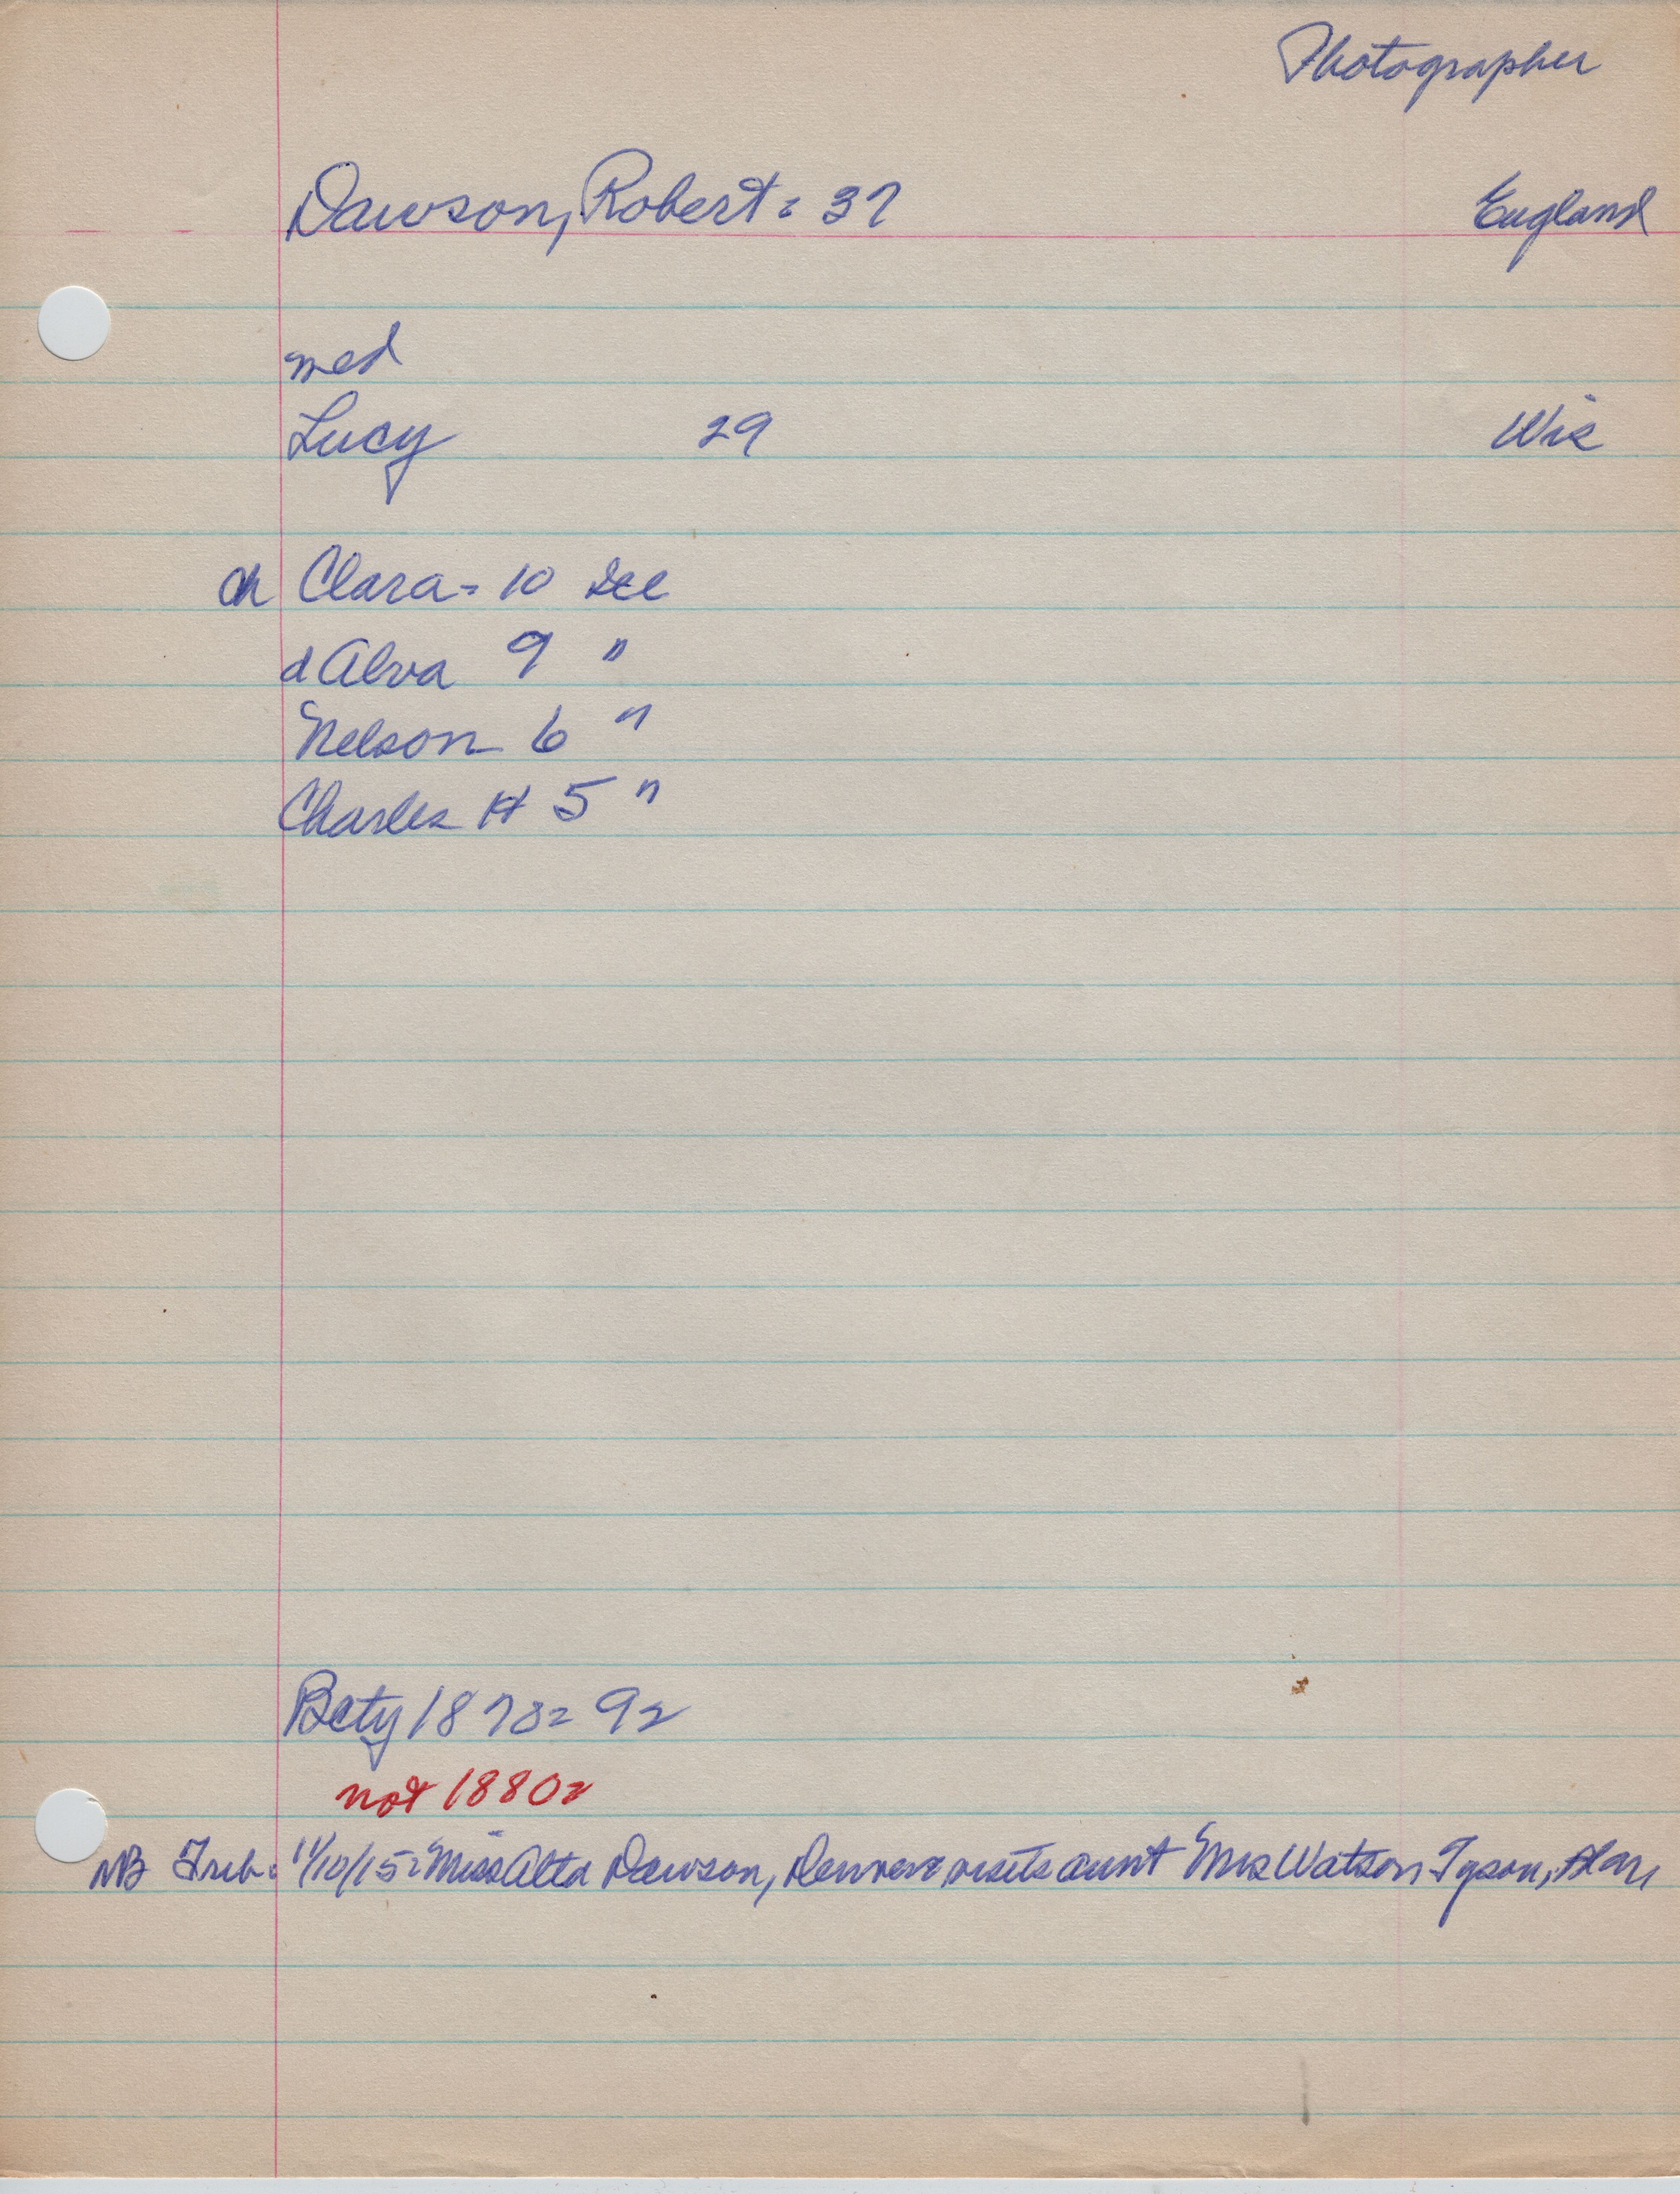 Photographer
Dawson, Robert = 37 England
med
Lucy 29 Wis
ch Clara - 10 Ill
d Alva 9 "
Nelson 6 "
Charles H 5 "
Bcty 1878 = 92
not 1880 =
NB Trib = 11/10/15 = Miss Alta Dawson, Denver visits aunt Mrs Watson Tyson,